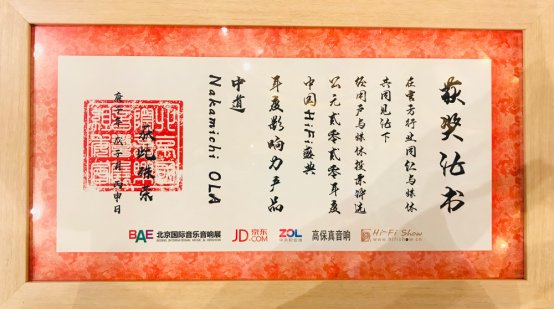 获奖证书
在官方行业同仁与媒体
共同见证下
经用户与媒体投票评选
公元贰零贰零年度
中国HiFi盛典
年度影响力产品
中道
Nakamichi OLA
获此殊荣
庚子年 戊子月 丙申日
BAE 北京国际音乐音响展
JD.COM 京东
ZOL 中关村在线
高保真音响
Hi-Fi Show
www.hifishow.cn